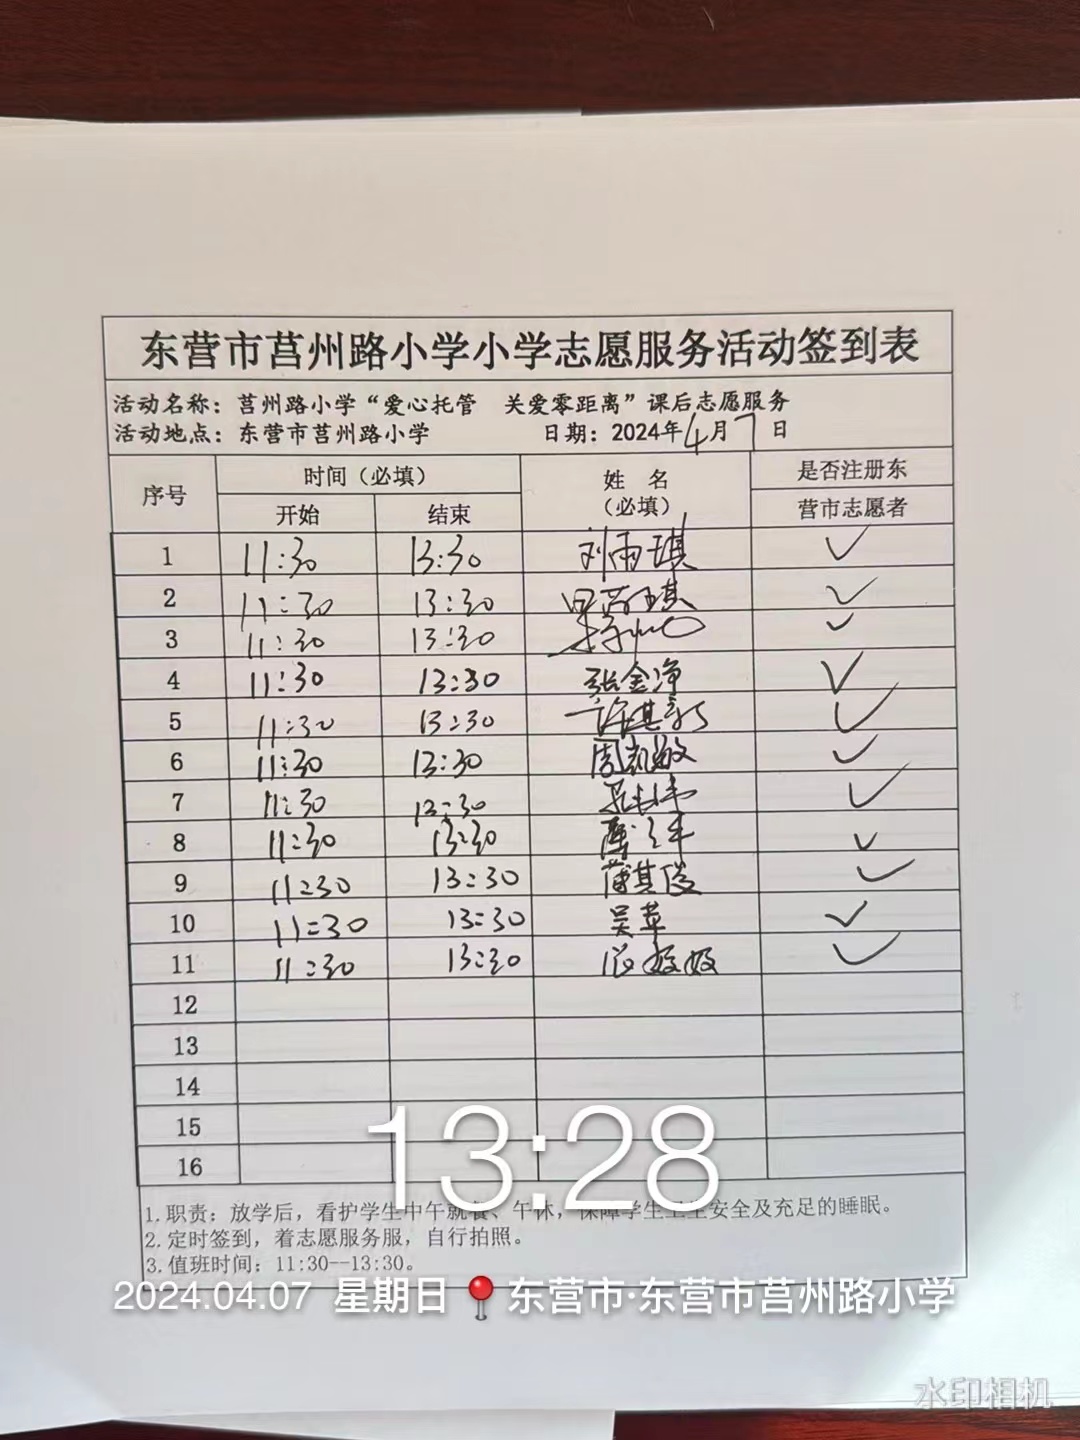 东营市莒州路小学小学志愿服务活动签到表
活动名称：莒州路小学“爱心托管 关爱零距离”课后志愿服务
活动地点：东营市莒州路小学 日期：2024年4月7日
序号 时间（必填） 姓 名 （必填） 是否注册东
开始 结束 营市志愿者
1 11:30 13:30 刘雨琪 ✓
2 11:30 13:30 ✓
3 11:30 13:30 ✓
4 11:30 13:30 张金净 ✓
5 11:30 13:30 ✓
6 11:30 13:30 周凯敏 ✓
7 11:30 13:30 ✓
8 11:30 13:30 ✓
9 11:30 13:30 薄其俊 ✓
10 11:30 13:30 吴苹 ✓
11 11:30 13:30 ✓
12
13
14
15
16
13:28
1.职责：放学后，看护学生中午就餐、午休，保障学生卫生安全及充足的睡眠。
2.定时签到，着志愿服务服，自行拍照。
3.值班时间：11:30--13:30。
2024.04.07 星期日 📍东营市·东营市莒州路小学
水印相机